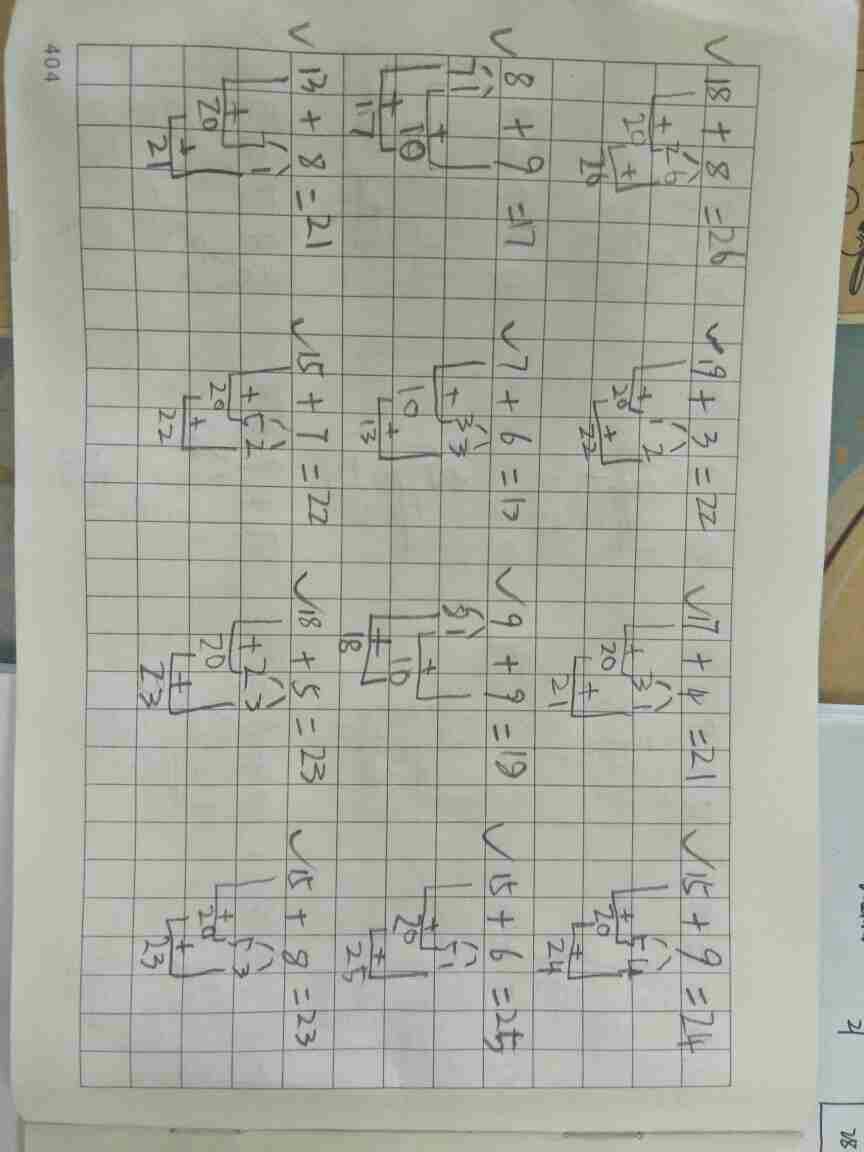 √18 + 8 = 26 √19 + 3 = 22 √17 + 4 = 21 √15 + 9 = 24
2 6 1 2 3 1 5 4
+ + + +
20 20 20 20
+ + + +
26 22 21 24
√8 + 9 = 17 √7 + 6 = 13 √9 + 9 = 19 √15 + 6 = 25
7 1 3 3 8 1 5 1
+ + + +
10 10 10 20
+ + + +
17 13 18 25
√13 + 8 = 21 √15 + 7 = 22 √18 + 5 = 23 √15 + 8 = 23
7 1 5 2 2 3 5 3
+ + + +
20 20 20 20
+ + + +
21 22 23 23
404
28